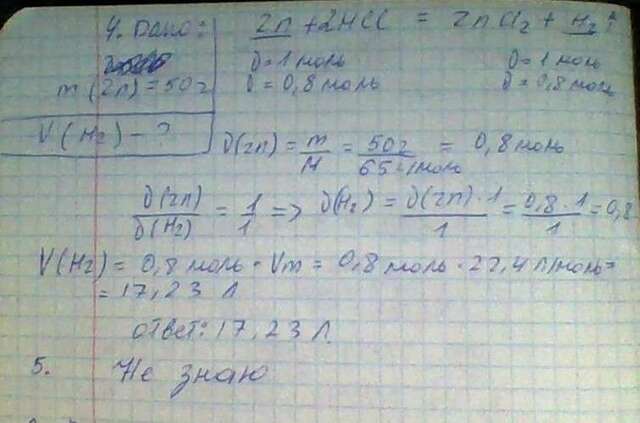 4. Дано: Zn + 2HCl = ZnCl2 + H2↑
ν = 1 моль ν = 1 моль
m (Zn) = 50 г ν = 0,8 моль ν = 0,8 моль
V (H2) - ?
ν(Zn) = m/M = 50 г/65 г/моль = 0,8 моль
ν(Zn)/ν(H2) = 1/1 => ν(H2) = ν(Zn)·1/1 = 0,8·1/1 = 0,8
V(H2) = 0,8 моль · Vm = 0,8 моль · 22,4 л/моль=
= 17,23 л
ответ: 17,23 л.
5. Не знаю